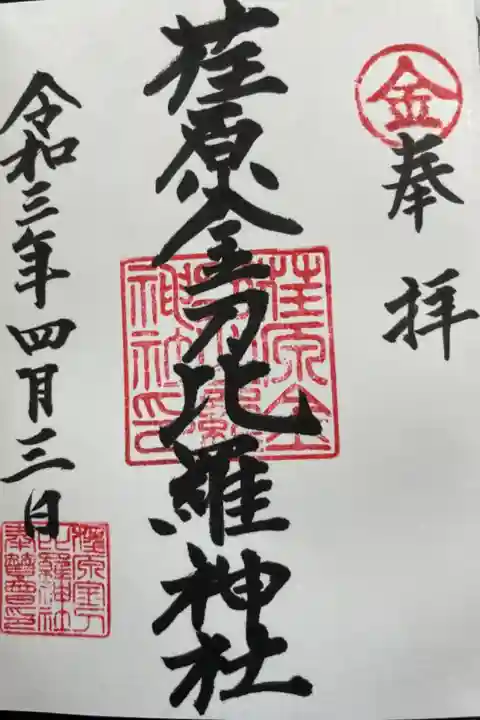 金
奉拝
荏原金刀比羅神社
荏原金刀比羅神社印
令和三年四月三日
荏原金刀比羅神社奉賛会印